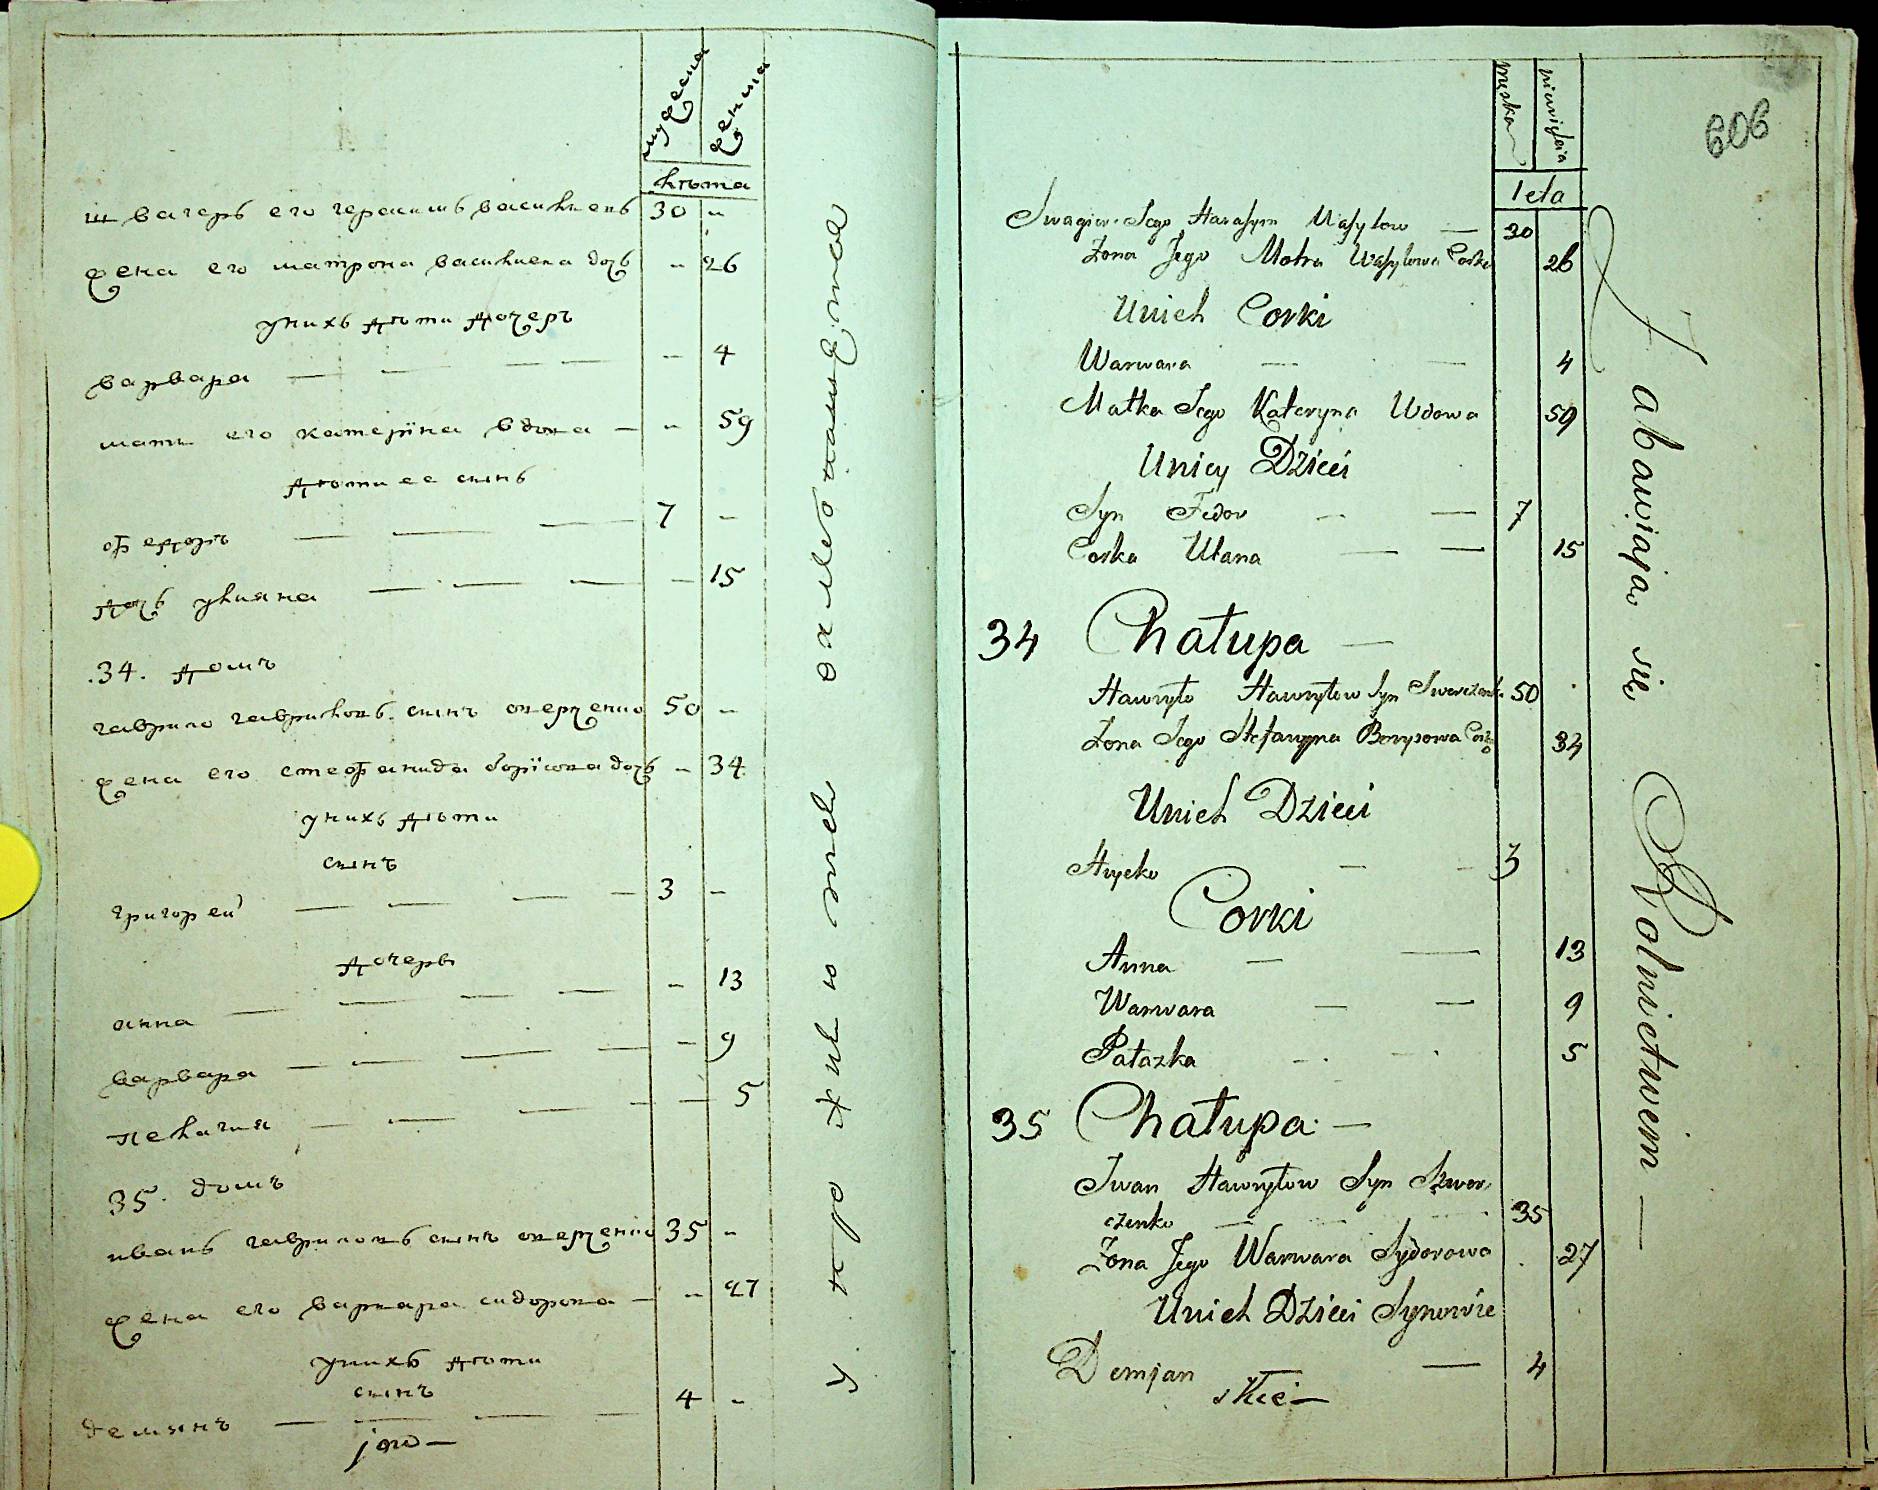 мужеска
женска
лѣта
швагеръ его герасимъ василиевъ 30 „
жена его матрона василиева дочь „ 26
у нихъ дѣти дочеръ
варвара — — — „ 4
мати его катерїна вдова — „ 59
дѣти ее сынъ
федоръ — — — 7 „
дочь улияна — — — „ 15
.34. домъ
гаврило гавриловъ сынъ 50 „
жена его стефанида борїсова дочь „ 34
у нихъ дѣти
сынъ
григорей — — — — 3 „
дочеры
анна — — — — „ 13
варвара — — — — „ 9
пелагия — — — — 5
35. домъ
иванъ гавриловъ сынъ 35 „
жена его варвара сидорова — „ 27
у нихъ дѣти
сынъ
демянъ — — — — 4 „
606
męska
leta
Swagier Jego Harasym Wasylow — 30
Zona Jego Motra Wasylowa Corka 26
Unich Corki
Warwara — — 4
Matka Jego Kateryna Wdowa 59
Unicy Dzieci
Syn Fedor — — 7
Corka Ulana — — 15
34 Chałupa —
Hawryło Hawryłow Syn 50
Zona Jego Borysowa Corka 34
Unich Dzieci
Hryćko — — 3
Corki
Anna — — 13
Warwara — — 9
Pałazka — — 5
35 Chałupa —
Iwan Hawryłow Syn Skwor
czenko — — — 35
Zona Jego Warwara Sydorowa 27
Unich Dzieci Synowie
Demjan — 4
Zabawiaja sie Rolnictwem —